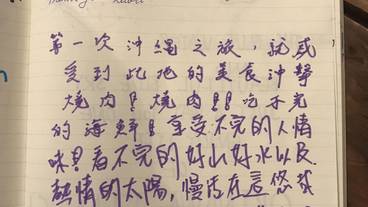 第一次沖繩之旅，就感
受到此地的美食沖擊
燒肉！燒肉！！吃不完
的海鮮！享受不完的人情
味！看不完的好山好水以及
熱情的太陽，慢活在這悠